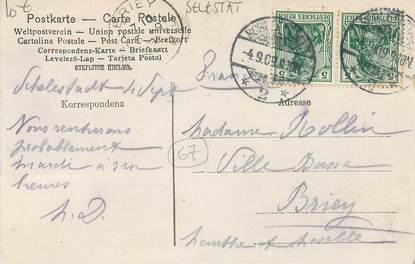 10 €
SELESTAT
BRIEY
Postkarte — Carte Postale
Weltpostverein — Union postale universelle
Cartolina Postale — Post Card — Brefkort
Correspondenz-Karte — Briefkaart
Levelező-Lap — Tarjeta Postal
ОТКРЫТОЕ ПИСЬМО.
DEUTSCHES REICH
DEUTSCHES REICH
5 5
5
4.9.09
* 2 *
Schelestadt 4 Sept
Korrespondenz
Adresse
Nous rentrerons
probablement
mardi à six
heures
h. D.
67
Madame Rollin
Ville Basse
Briey
Meurthe et Moselle